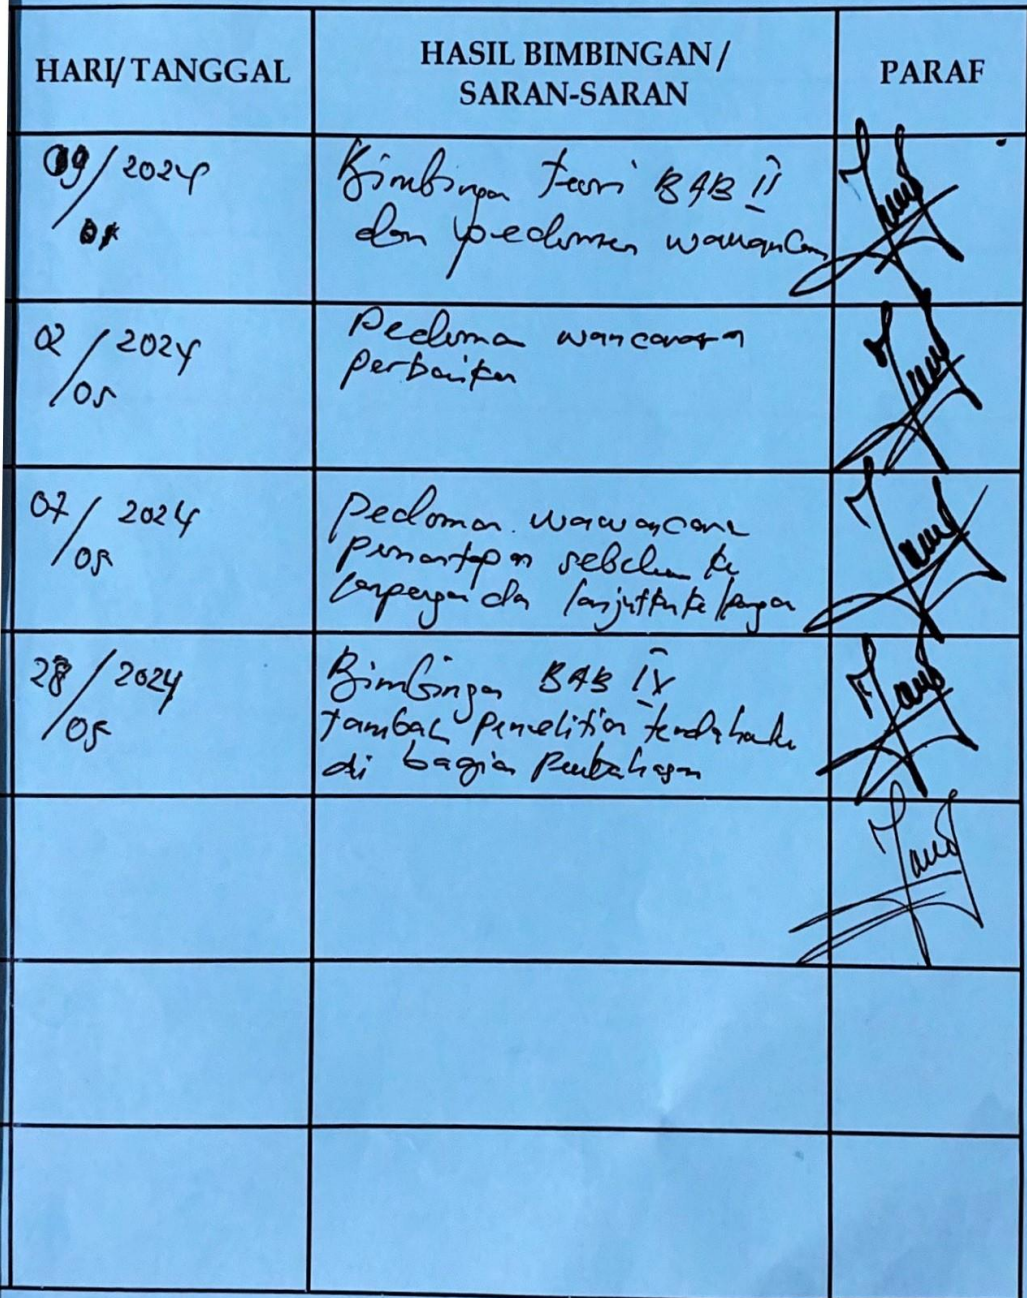 HARI/TANGGAL
HASIL BIMBINGAN/
SARAN-SARAN
PARAF
09/2024
Bimbingan teori BAB II
dan pedoman wawancara
02/2024
05
Pedoman wancanara
perbaikan
07/2024
05
Pedoman wawancara
pemantapan sebelum ke
lapangan dan lanjutkan ke lapangan
28/2024
05
Bimbingan BAB IV
tambah penelitian terdahulu
di bagian Pembahasan